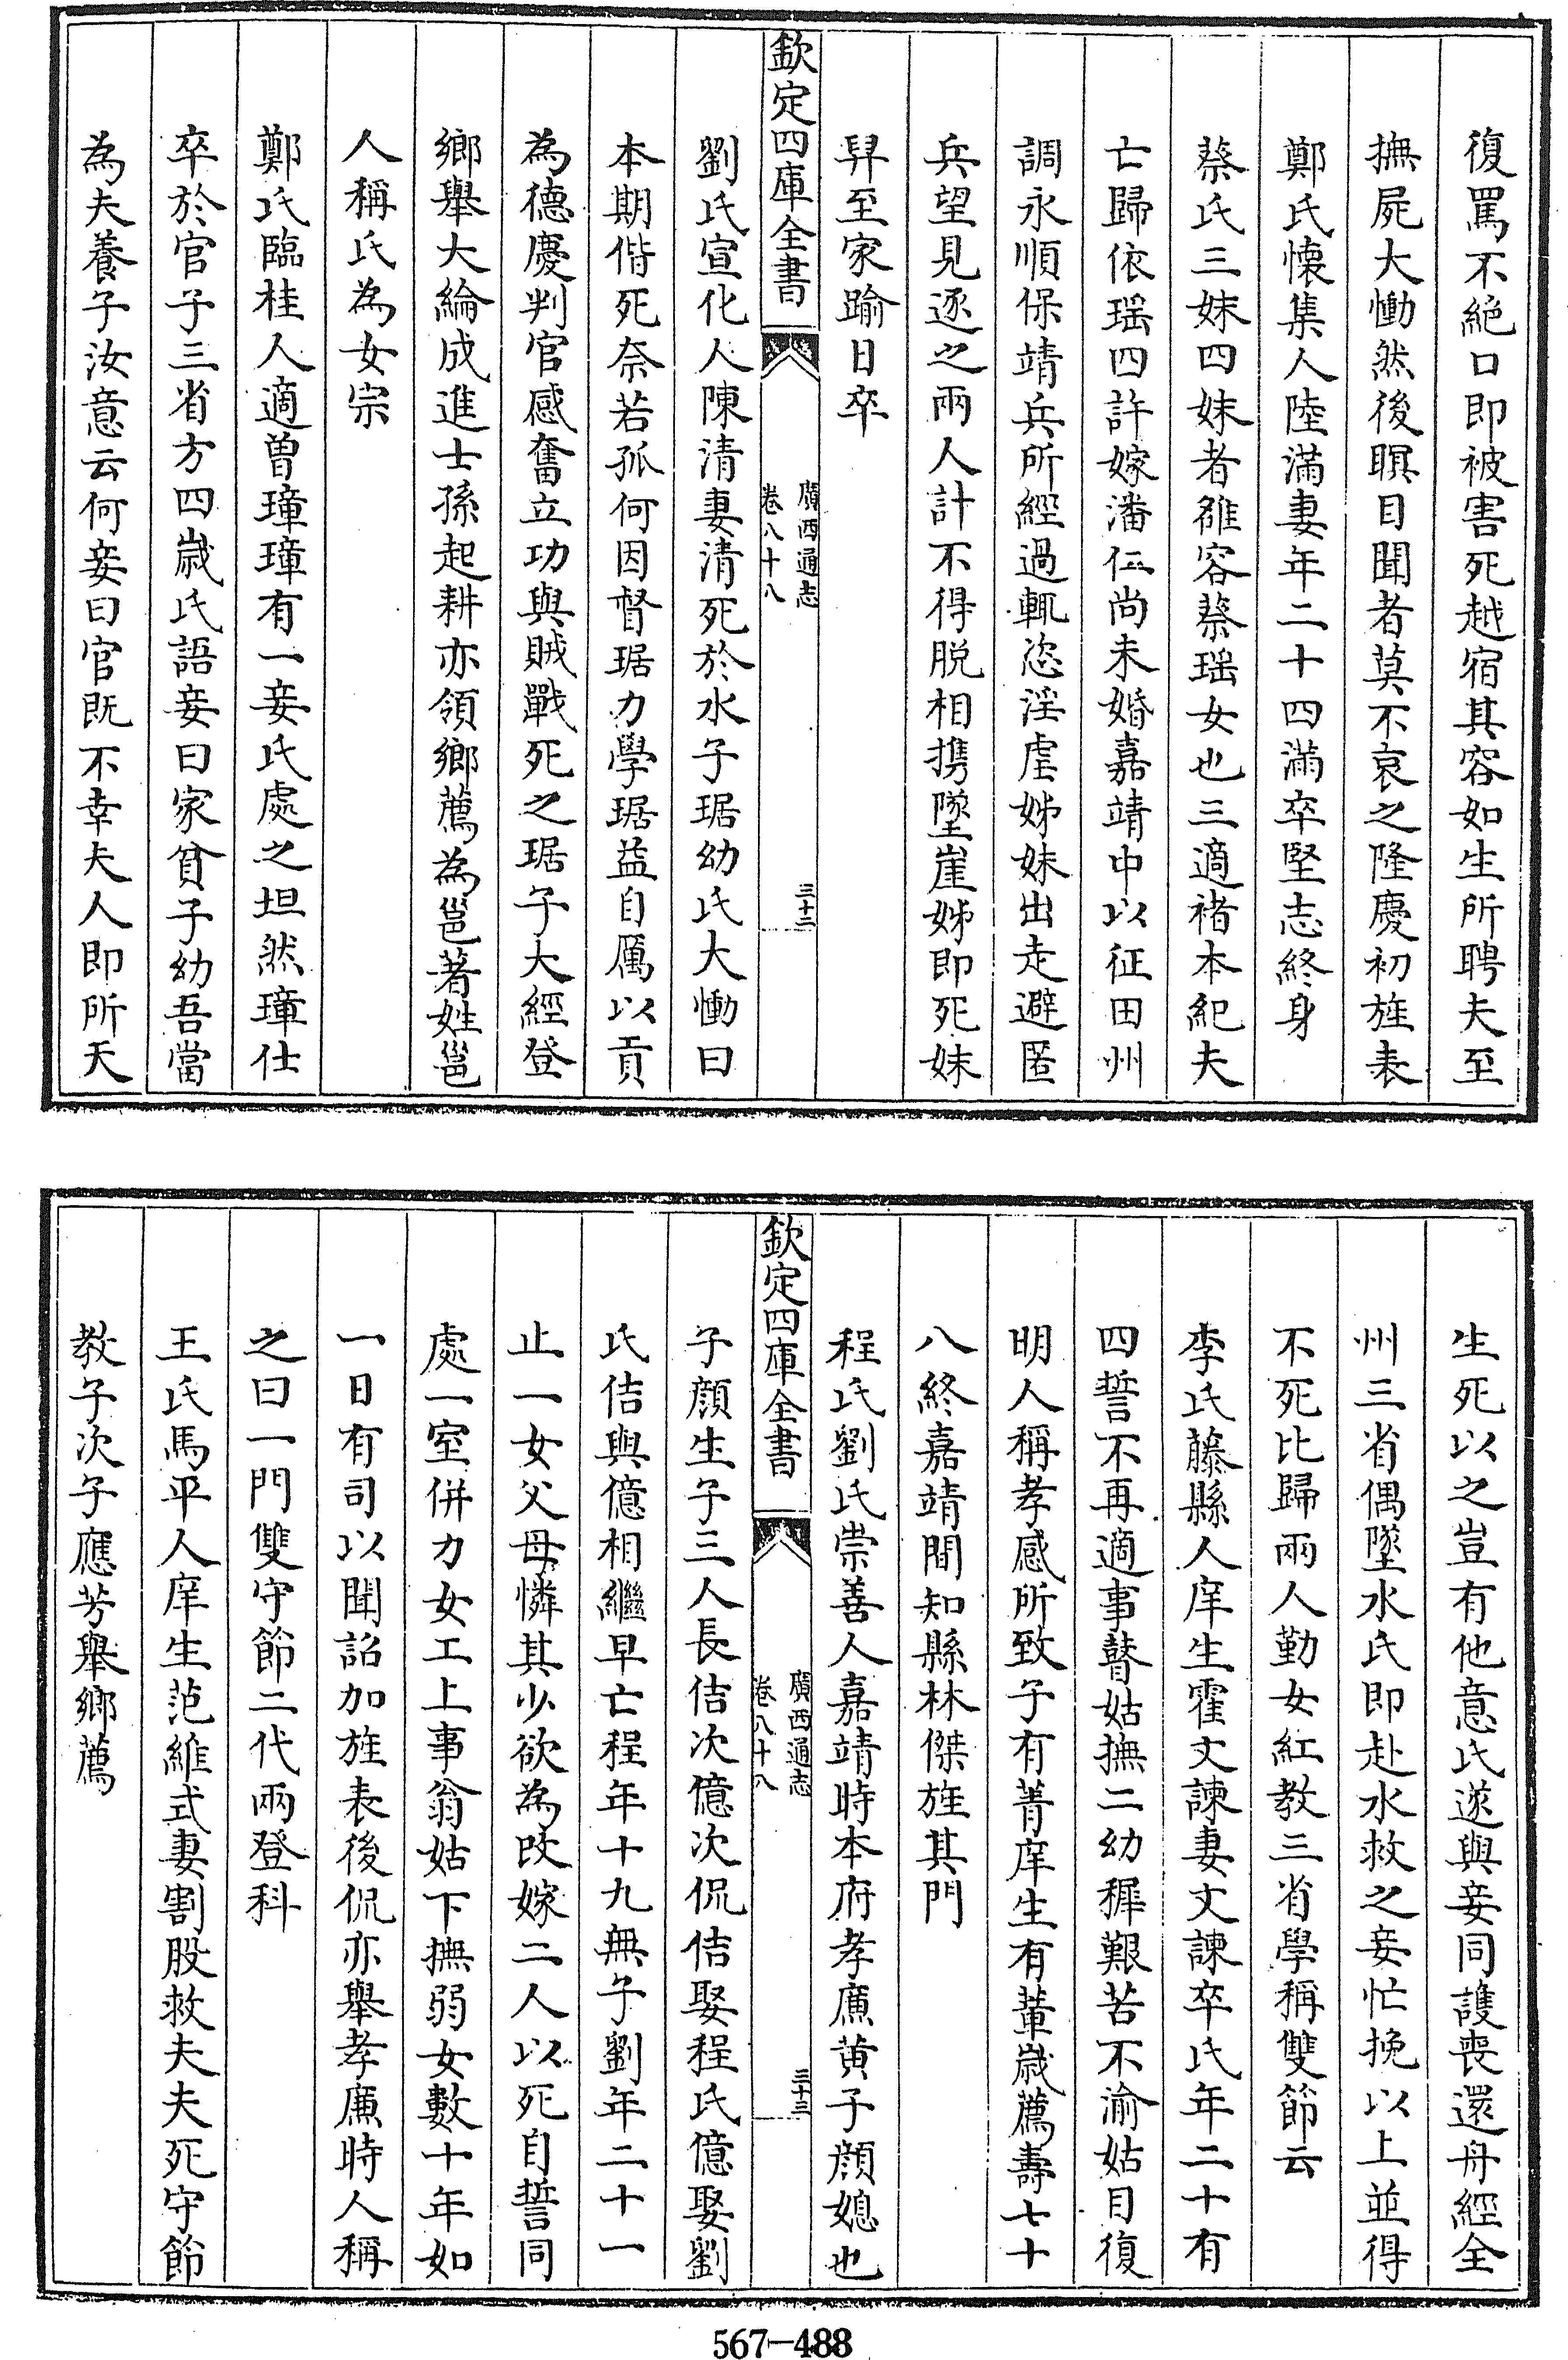 復罵不絕口即被害死越宿其容如生所聘夫至
撫屍大慟然後瞑目聞者莫不哀之隆慶初旌表
鄭氏懷集人陸滿妻年二十四滿卒堅志終身
蔡氏三妹四妹者雒容蔡瑶女也三適褚本紀夫
亡歸依瑶四許嫁潘仁尚未婚嘉靖中以征田州
調永順保靖兵所經過輒恣淫虐姊妹出走避匿
兵望見逐之兩人計不得脱相攜墜崖姊即死妹
舁至家踰日卒
欽定四庫全書
廣西通志
卷八十八
三十二
劉氏宣化人陳清妻清死於水子琚幼氏大慟曰
本期偕死奈若孤何因督琚力學琚益自厲以貢
為德慶判官感奮立功與賊戰死之琚子大經登
鄉舉大綸成進士孫起耕亦領鄉薦為邕著姓邕
人稱氏為女宗
鄭氏臨桂人適曽璋璋有一妾氏處之坦然璋仕
卒於官子三省方四歲氏語妾曰家貧子幼吾當
為夫養子汝意云何妾曰官既不幸夫人即所天
生死以之豈有他意氏遂與妾同護喪還舟經全
州三省偶墜水氏即赴水救之妾忙挽以上並得
不死比歸兩人勤女紅教三省學稱雙節云
李氏藤縣人庠生霍文諫妻文諫卒氏年二十有
四誓不再適事瞽姑撫二幼穉艱苦不渝姑目復
明人稱孝感所致子有菁庠生有葷歲薦壽七十
八終嘉靖間知縣林傑旌其門
程氏劉氏崇善人嘉靖時本府孝廉黄子顔媳也
欽定四庫全書
廣西通志
卷八十八
三十三
子顔生子三人長佶次億次侃佶娶程氏億娶劉
氏佶與億相繼早亡程年十九無子劉年二十一
止一女父母憐其少欲為改嫁二人以死自誓同
處一室併力女工上事翁姑下撫弱女數十年如
一日有司以聞詔加旌表後侃亦舉孝廉時人稱
之曰一門雙守節二代兩登科
王氏馬平人庠生范維式妻割股救夫夫死守節
教子次子應芳舉鄉薦
567-488